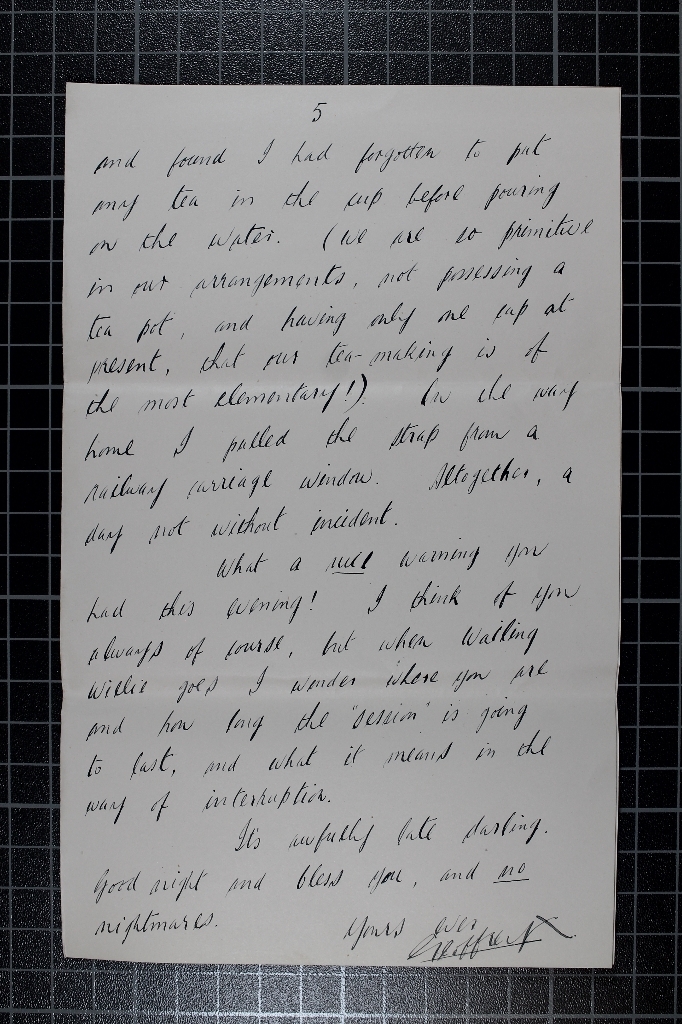 5
and found I had forgotten to put
any tea in the cup before pouring
on the water. (We are so primitive
in our arrangements, not possessing a
tea pot, and having only one cup at
present, that our tea-making is of
the most elementary!). On the way
home I pulled the strap from a
railway carriage window. Altogether, a
day not without incident.
What a warning you
had this evening! I think of you
always of course, but when Wailing
Willie goes I wonder where you are
and how long the "session" is going
to last, and what it means in the
way of interruption.
It's awfully late darling.
Good night and bless you, and no
nightmares.
Yours ever
Geoffrey